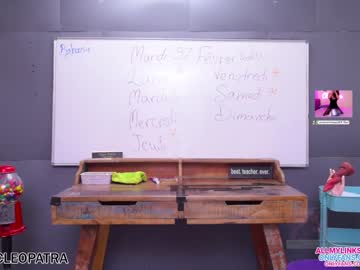 Mardi 27 Février
Lundi
Mardi
Mercredi
Jeudi
vendredi
Samedi
Dimanche
best. teacher. ever.
CLEOPATRA
ALLMYLINKS
ONLYFANS
ONLYFANS.CO